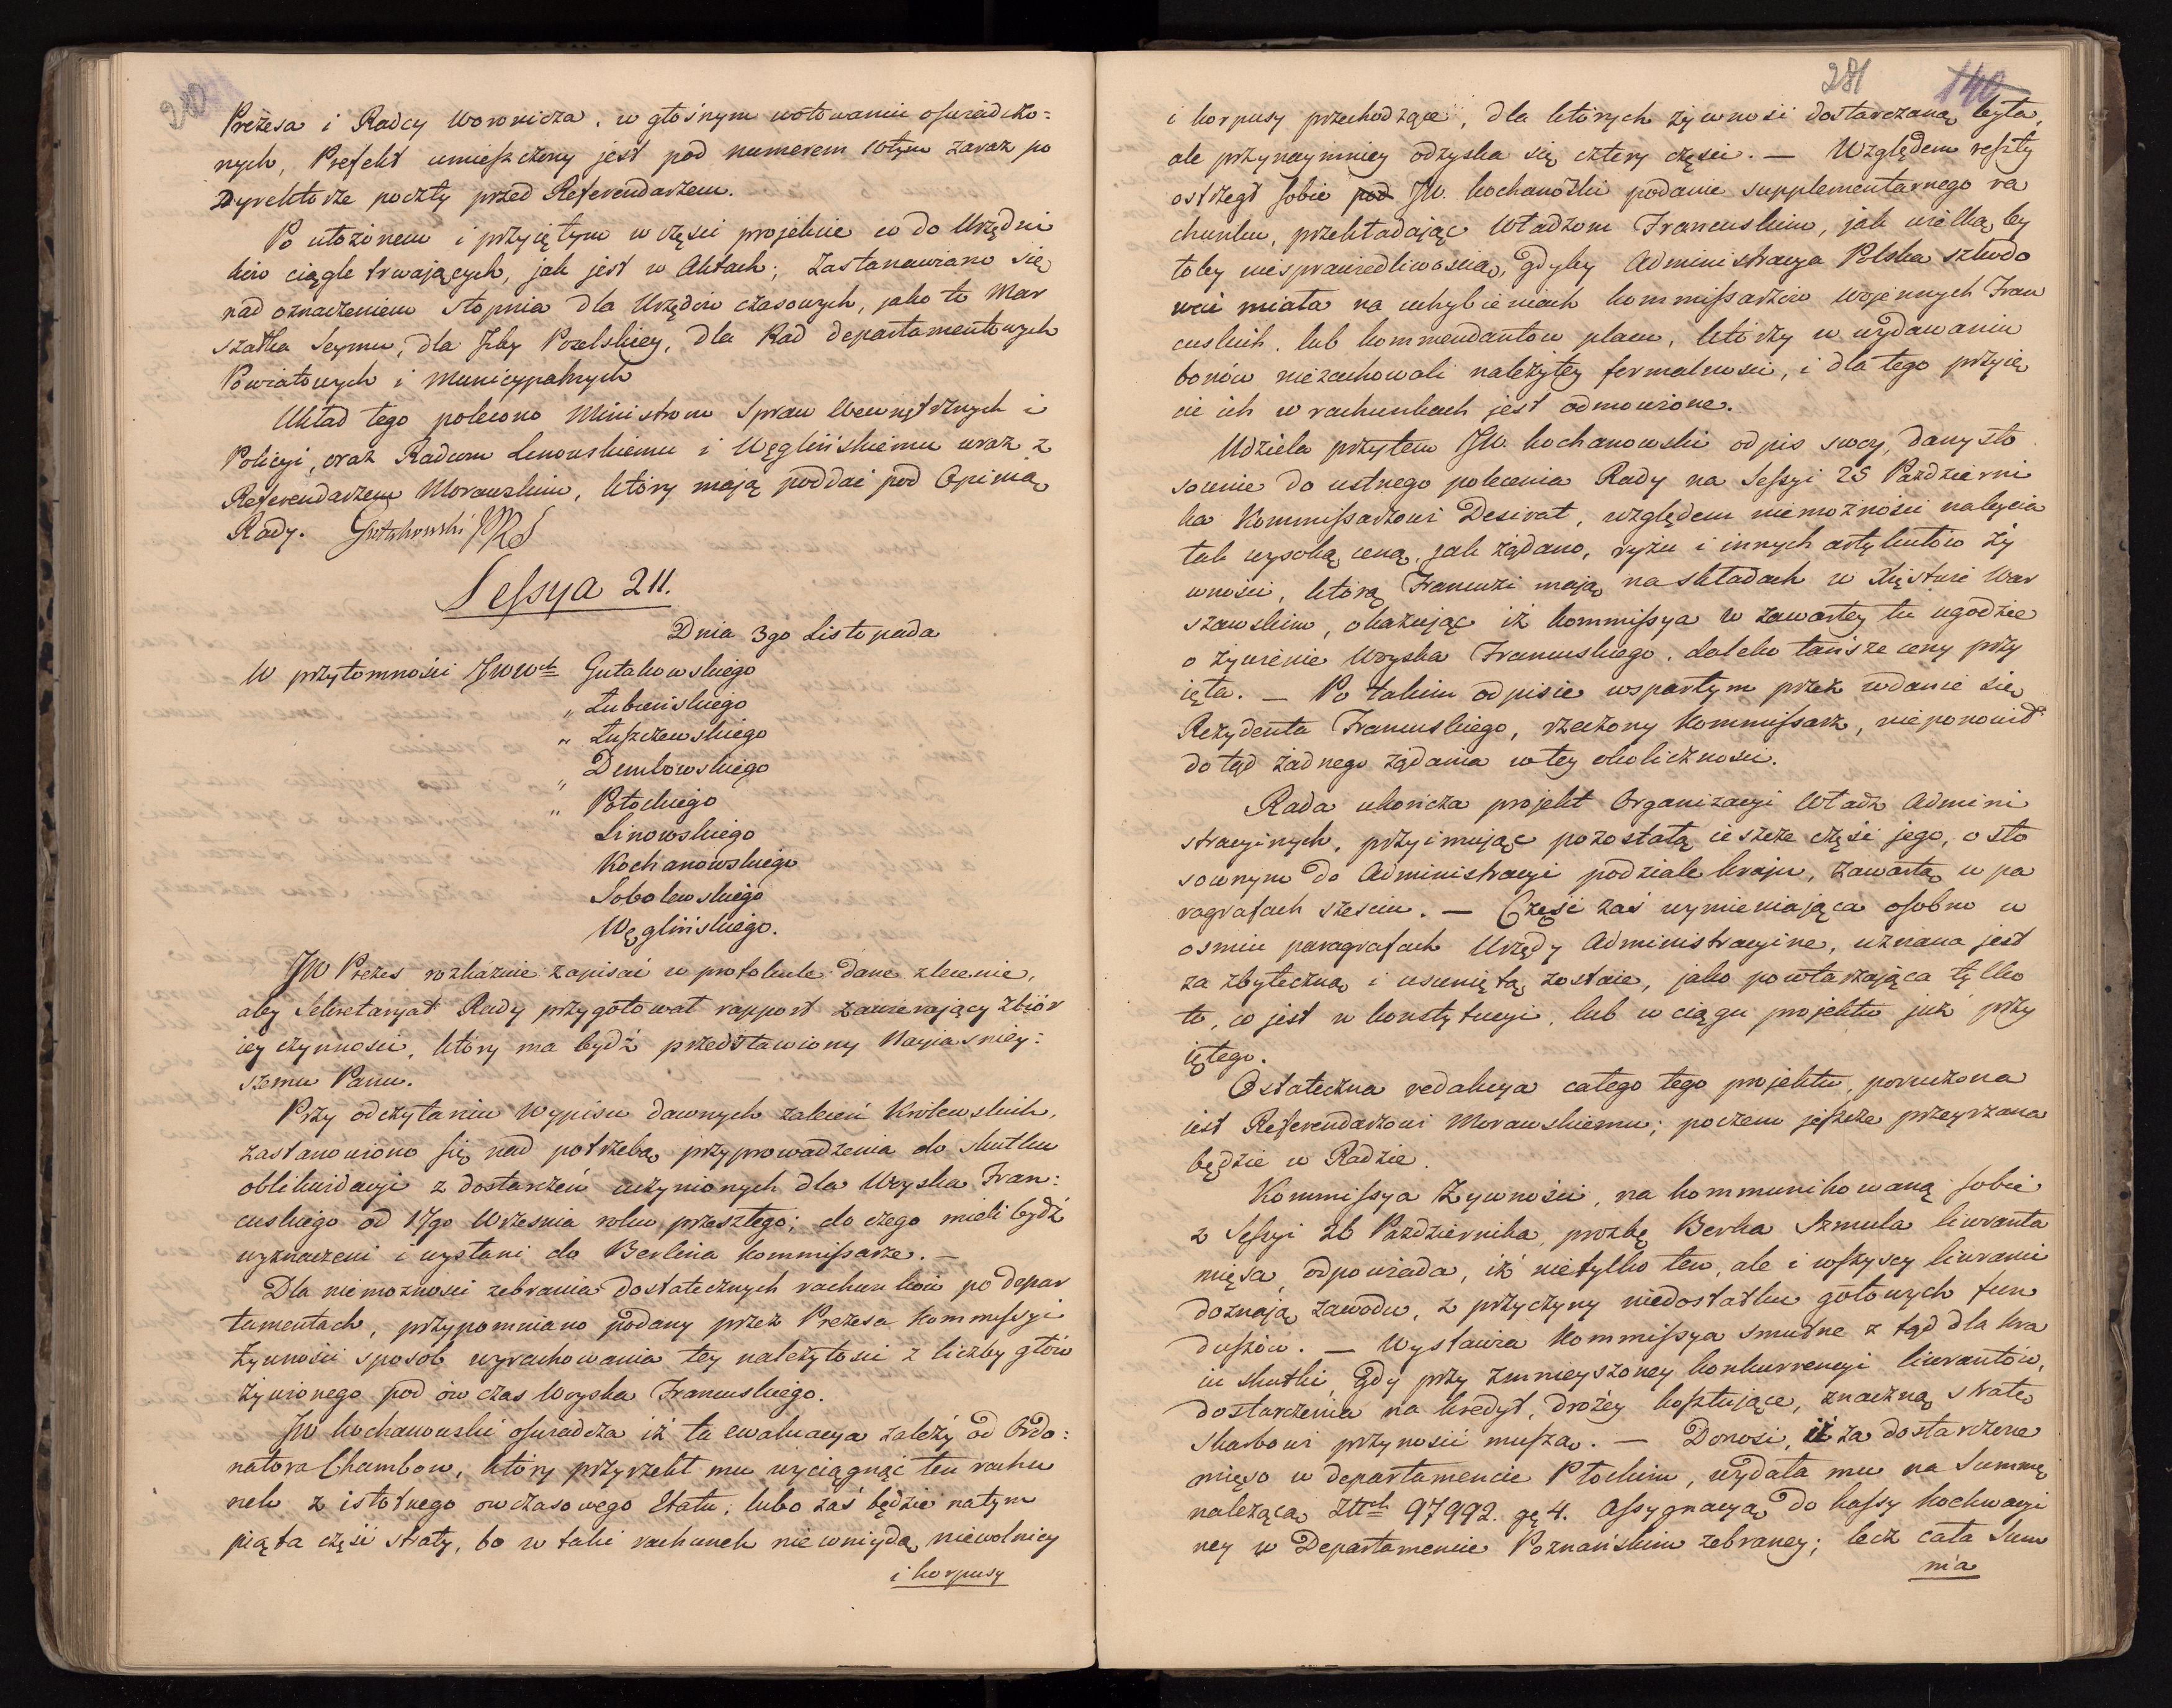 Prezesa i Radcy Woronicza, w głośnym wotowaniu oświadczo=
nych, Prefekt umieszczony jest pod numerem 10tym zaraz po
Dyrektorze poczty przed Referendarzem.
Po ułożonem i przyiętym w części projekcie co do Urzędni
ków ciągle trwających, jak jest w Aktach; Zastanawiano się
nad oznaczeniem stopnia dla Urzędów czasowych, jako to Mar
szałka Seymu, dla Izby Poselskiey, dla Rad departamentowych
Powiatowych i Municypalnych
Układ tego polecono Ministrom Spraw Wewnętrznych i
Policyi, oraz Radcom Linowskiemu i Węglińskiemu wraz z
Referendarzem Morawskim, który mają poddać pod Opinią
Rady. Gutakowski
Sessya 211.
Dnia 3go Listopada
W przytomności JWWch Gutakowskiego
„ Łubieńskiego
„ Łuszczewskiego
„ Dembowskiego
„ Potockiego
Linowskiego
Kochanowskiego
Sobolewskiego
Węglińskiego.
JW Prezes rozkazuie zapisać w protokule dane zlecenie,
aby Sekretaryat Rady przygotował rapport zawierający zbiór
iey czynności, który ma bydź przedstawiony Nayiaśniey=
szemu Panu.
Przy odczytaniu Wypisu dawnych zaleceń Królewskich,
zastanowiono się nad potrzebą przyprowadzenia do skutku
oblikwidacyi z dostarczeń uczynionych dla Woyska Fran=
cuskiego od 17go Września roku przeszłego; do czego mieli bydź
wyznaczeni i wysłani do Berlina Kommissarze. —
Dla niemożności zebrania dostatecznych rachunków po depar
tamentach, przypomniano podany przez Prezesa Kommissyi
Żywności sposób wyrachowania tey należytości z liczby głów
żywionego pod ów czas Woyska Francuskiego.
JW Kochanowski oświadcza iż ta ewaluacya zależy od Ordo=
natora Chambon, który przyrzekł mu wyciągnąć ten rachu
nek z istotnego ówczasowego Etatu; lubo zaś będzie natym
piąta część straty, bo w taki rachunek nie wniydą niewolnicy
i korpusy
281 140
i korpusy przechodzące, dla których żywność dostarczaną była,
ale przynaymniey odzyska się cztery części. — Względem reszty
ostrzegł sobie pod JW. Kochanowski podanie supplementarnego ra
chunku, przekładając Władzom Francuskim, jak wielką by
toby niesprawiedliwością, gdyby Administracya Polska szkodo
wać miała na uchybieniach kommissarzów wojennych Fran
cuskich, lub kommendantów placu, którzy w wydawaniu
bonów niezachowali należytey formalności, i dla tego przyię
cie ich w rachunkach jest odmówione.
Udziela przytem JW. Kochanowski odpis swóy, dany sto
sownie do ustnego polecenia Rady na Sessyi 25 Październi
ka Kommissarzowi Desirat, względem niemożności nabycia
tak wysoką ceną, jak żądano, ryżu i innych artykułów ży
wności, którą Francuzi mają na składach w Xięstwie War
szawskim, okazując iż Kommissya w zawartey tu ugodzie
o żywienie Woyska Francuskiego, daleko tańsze ceny przy
ięła. — Po takim odpisie wspartym przez udanie się
Rezydenta Francuskiego, rzeczony Kommissarz, nieponowił
dotąd żadnego żądania wtey okoliczności.
Rada ukończa projekt Organizacyi Władz Admini
stracyinych, przyimując pozostałą ieszcze część jego, o sto
sownym do Administracyi podziale kraju, zawartą w pa
ragrafach sześciu. — Część zaś wymieniająca osobno w
ośmiu paragrafach Urzędy Administracyine, uznana jest
za zbyteczną i usuniętą zostaie, jako powtarzająca tylko
to, co jest w konstytucyi, lub w ciągu projektu już przy
iętego.
Ostateczna redakcya całego tego projektu, poruczona
iest Referendarzowi Morawskiemu; poczem jeszcze przeyrzana
będzie w Radzie.
Kommissya Żywności, na kommunikowaną sobie
z Sessyi 26 Października, prozbę Berka Szmula liweranta
mięsa odpowiada, iż nietylko ten, ale i wszyscy liweranci
doznają zawodu, z przyczyny niedostatku gotowych fun
duszów. — Wystawia Kommissya smutne z tąd dla kra
iu skutki, gdy przy zmnieyszoney konkurrencyi liwerantów,
dostarczenia na kredyt, drożey kosztujące, znaczną stratę
Skarbowi przynosić muszą. — Donosi, iż za dostarczone
mięso w departamencie Płockim, wydała mu na Summę
należącą Złłch 97992. gr 4. Assygnacyą do kassy kochwacyi
ney w Departamencie Poznańskim zebraney; lecz cała Sum
ma